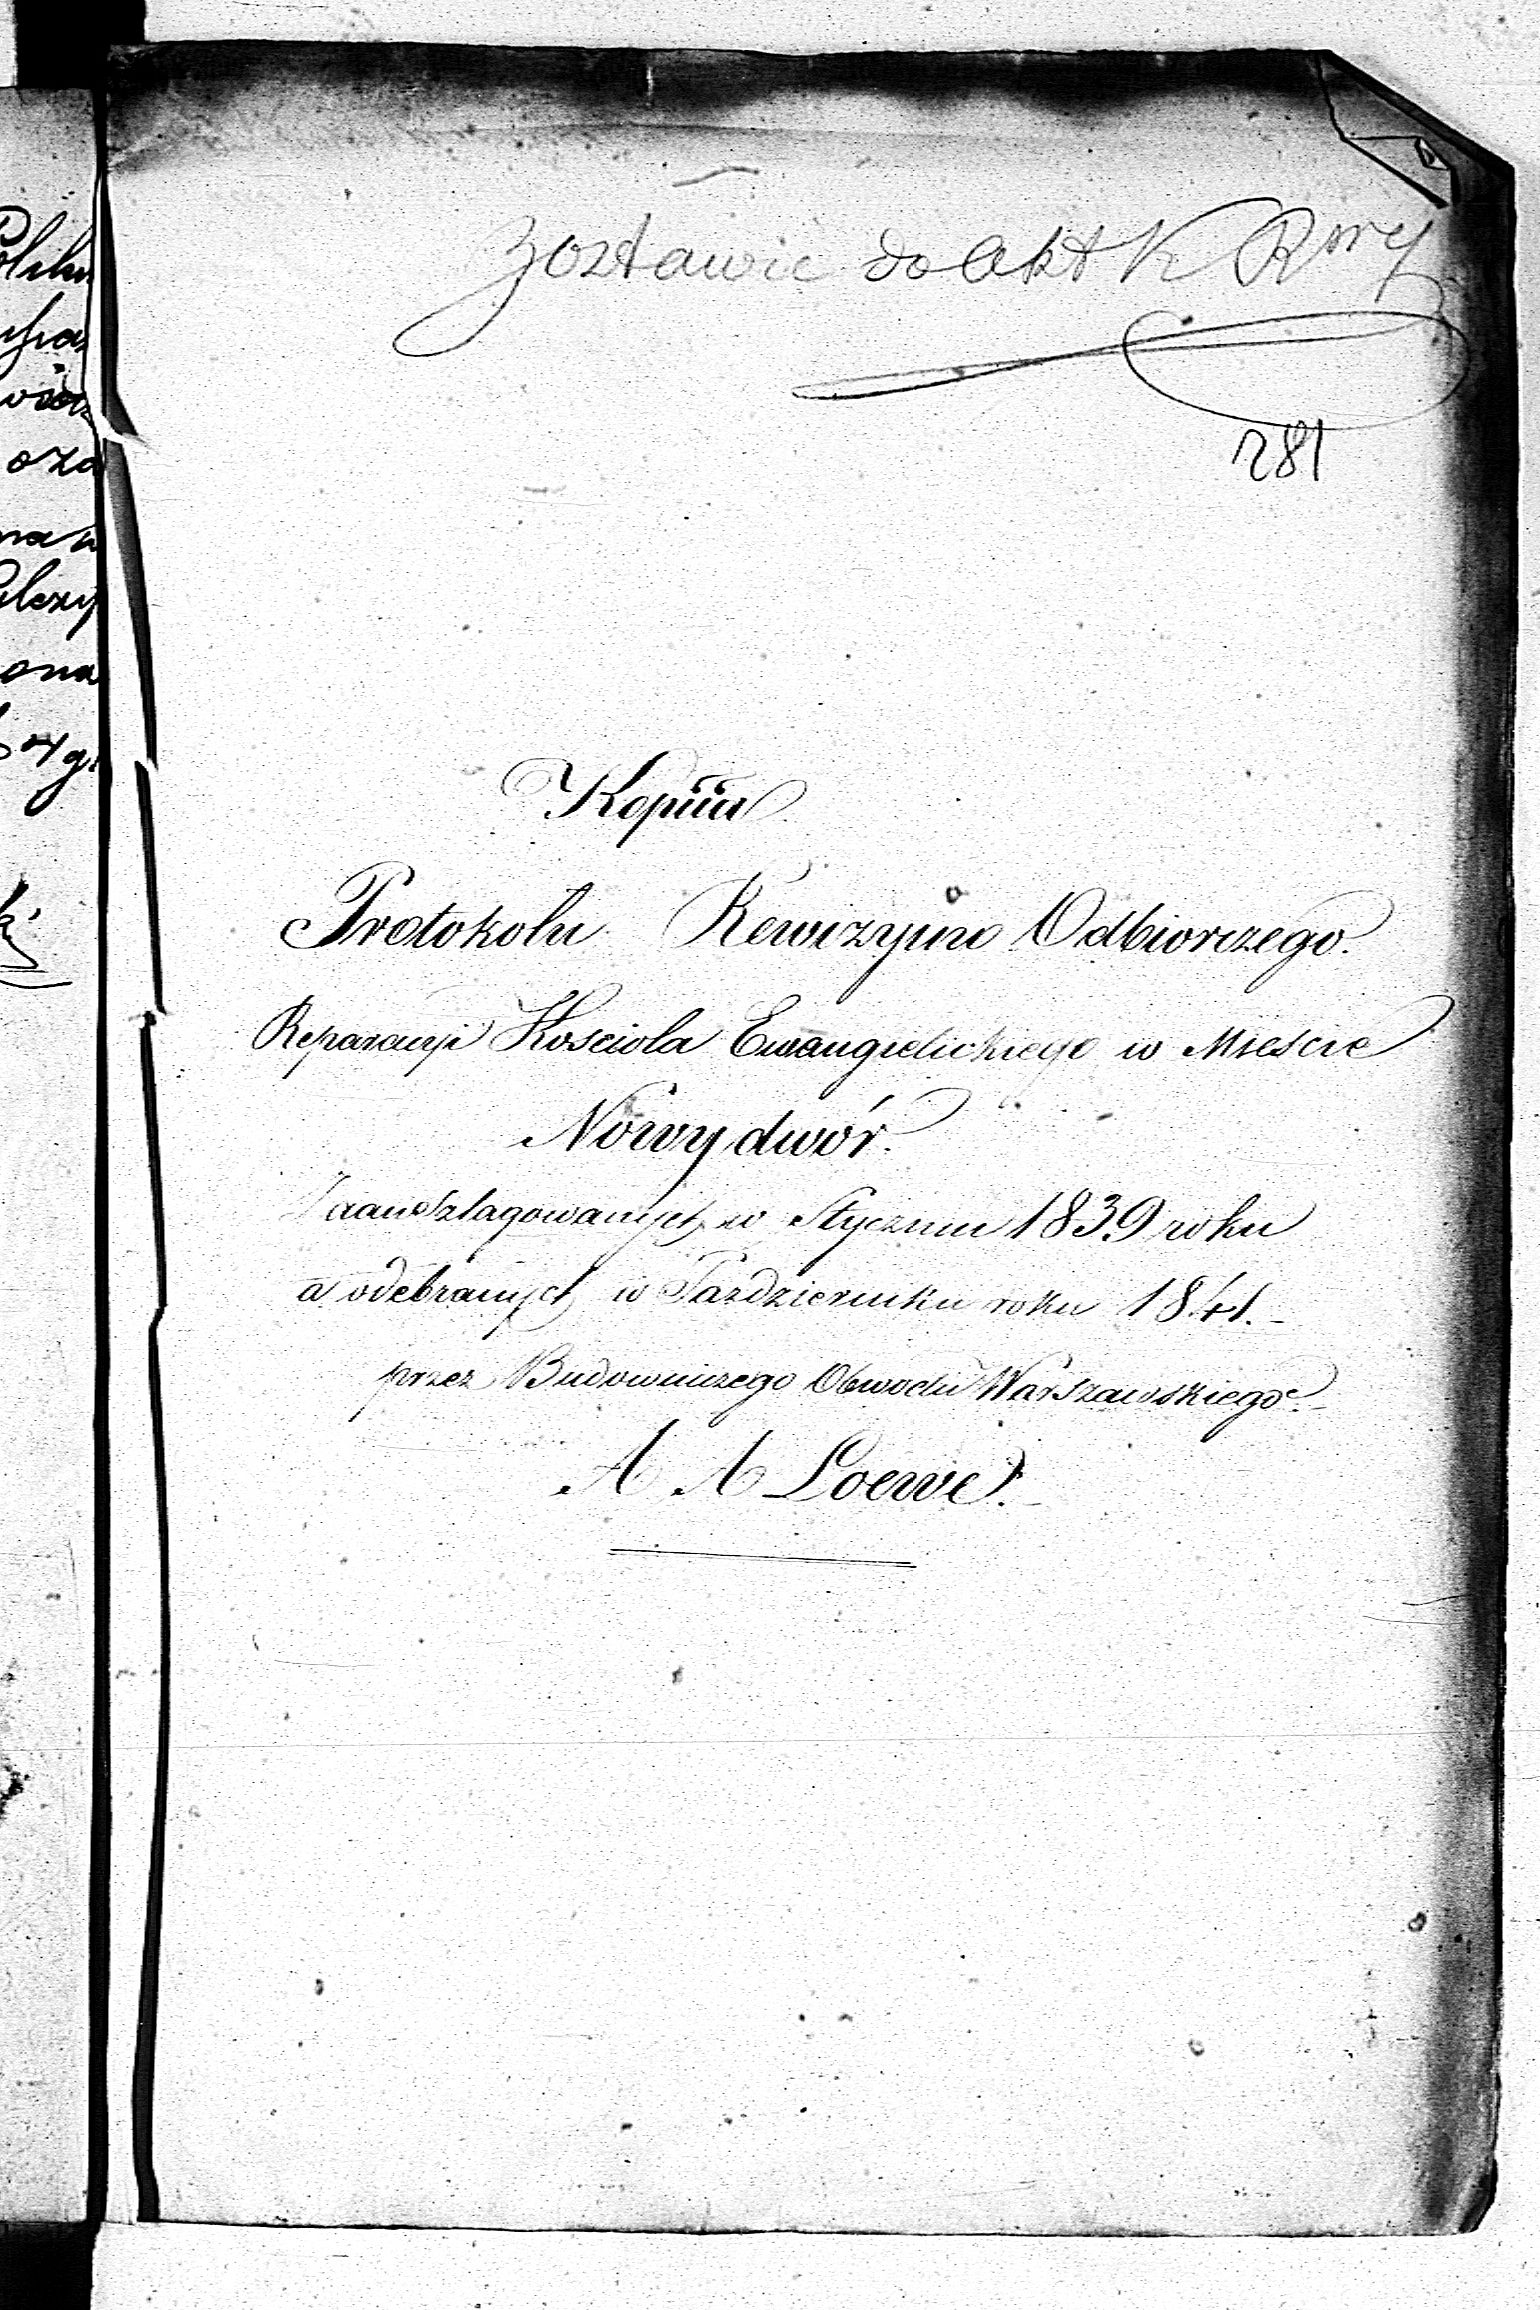 Zostawić do akt K Rwy
281
Kopiia
Protokołu Rewizyino Odbiorczego.
Reparacyi Kościoła Ewangielickiego w Mieście
Nowydwór.
Zaanszlagowanych w Styczniu 1839 roku
a odebranych w Pazdzierniku roku 1841.
przez Budowniczego Obwodu Warszawskiego.
A A Loewe.